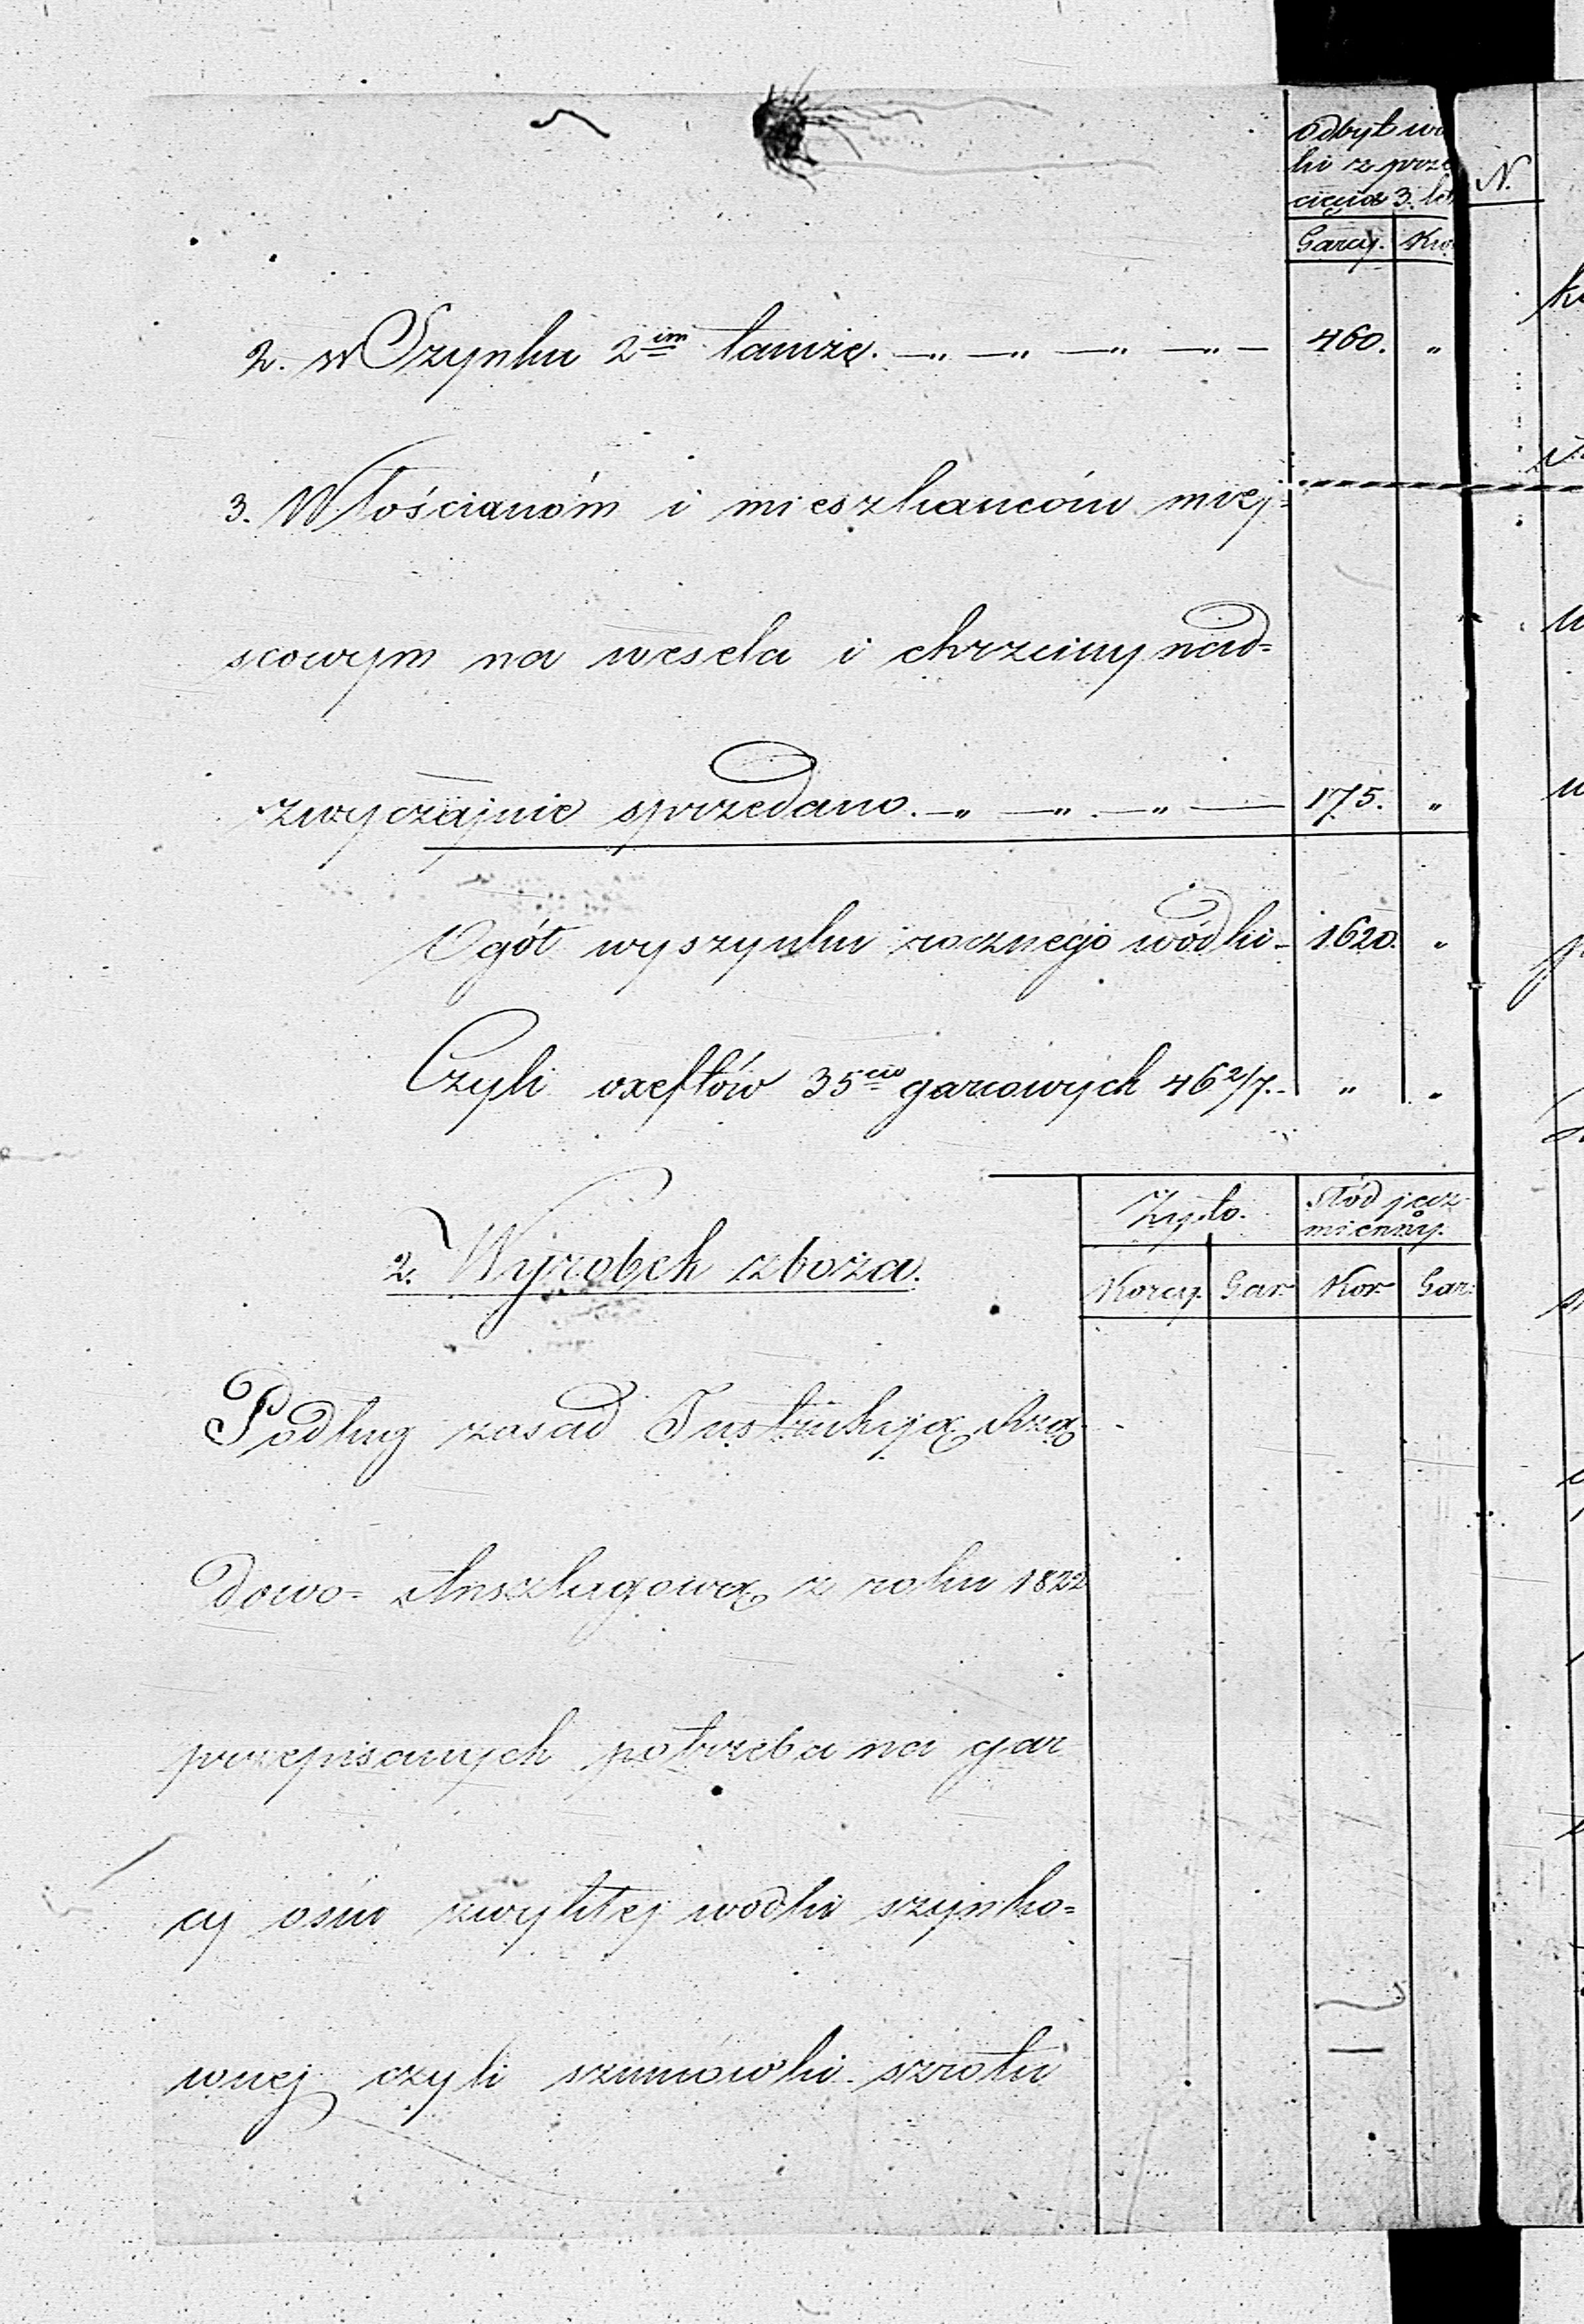 Odbyt wó
ki z prze
cięcia 3. let
Garcy. Kw.
N.
2. w Szynku 2im tamże. —„ —„ —„ —„ — 460. „
3. Włościanóm i mieszkańcóm miej=
scowym na wesela i chrzciny nad=
zwyczajnie sprzedano. —„ —„ —„ — 175. „
Ogół wyszynku rocznego wódki - 1620. „
Czyli oxeftów 35cio garcowych 46 2/7. - „ „
2. Wyrobek zboża.
Żyto. Słód jęcz-
mienny.
Korcy. Gar. Kor. Gar:
Podług zasad Instrukcją Rzą
dowo= Anszlagową z roku 1822
przepisanych potrzeba na gar
cy ośm zwykłej wodki szynko=
wnej czyli szumówki szrótu